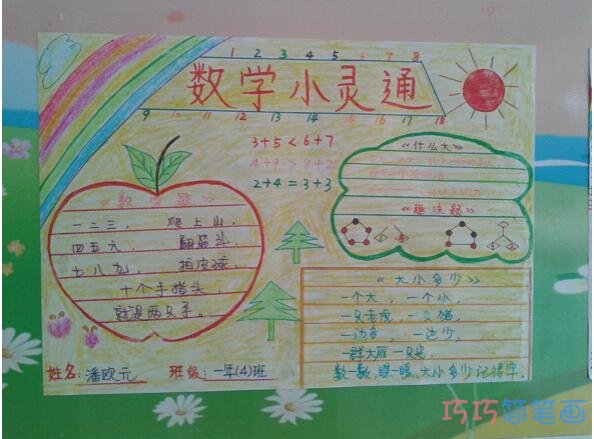 1 2 3 4 5 6 7 8
数学小灵通
9 10 11 12 13 14 15 16 17 18
3+5<6+7
4+9>8+2
2+4=3+3
《数字歌》
一二三，爬上山，
四五六，翻筋斗，
七八九，拍皮球，
十个手指头，
就是两只手。
《什么大》
《趣味题》
《大小多少》
一个大，一个小，
一只老虎，一只猫，
一边多，一边少，
一群大雁一只鸟
数一数，瞧一瞧，大小多少记得牢
姓名：潘欧元 班级：一年(4)班
巧巧简笔画